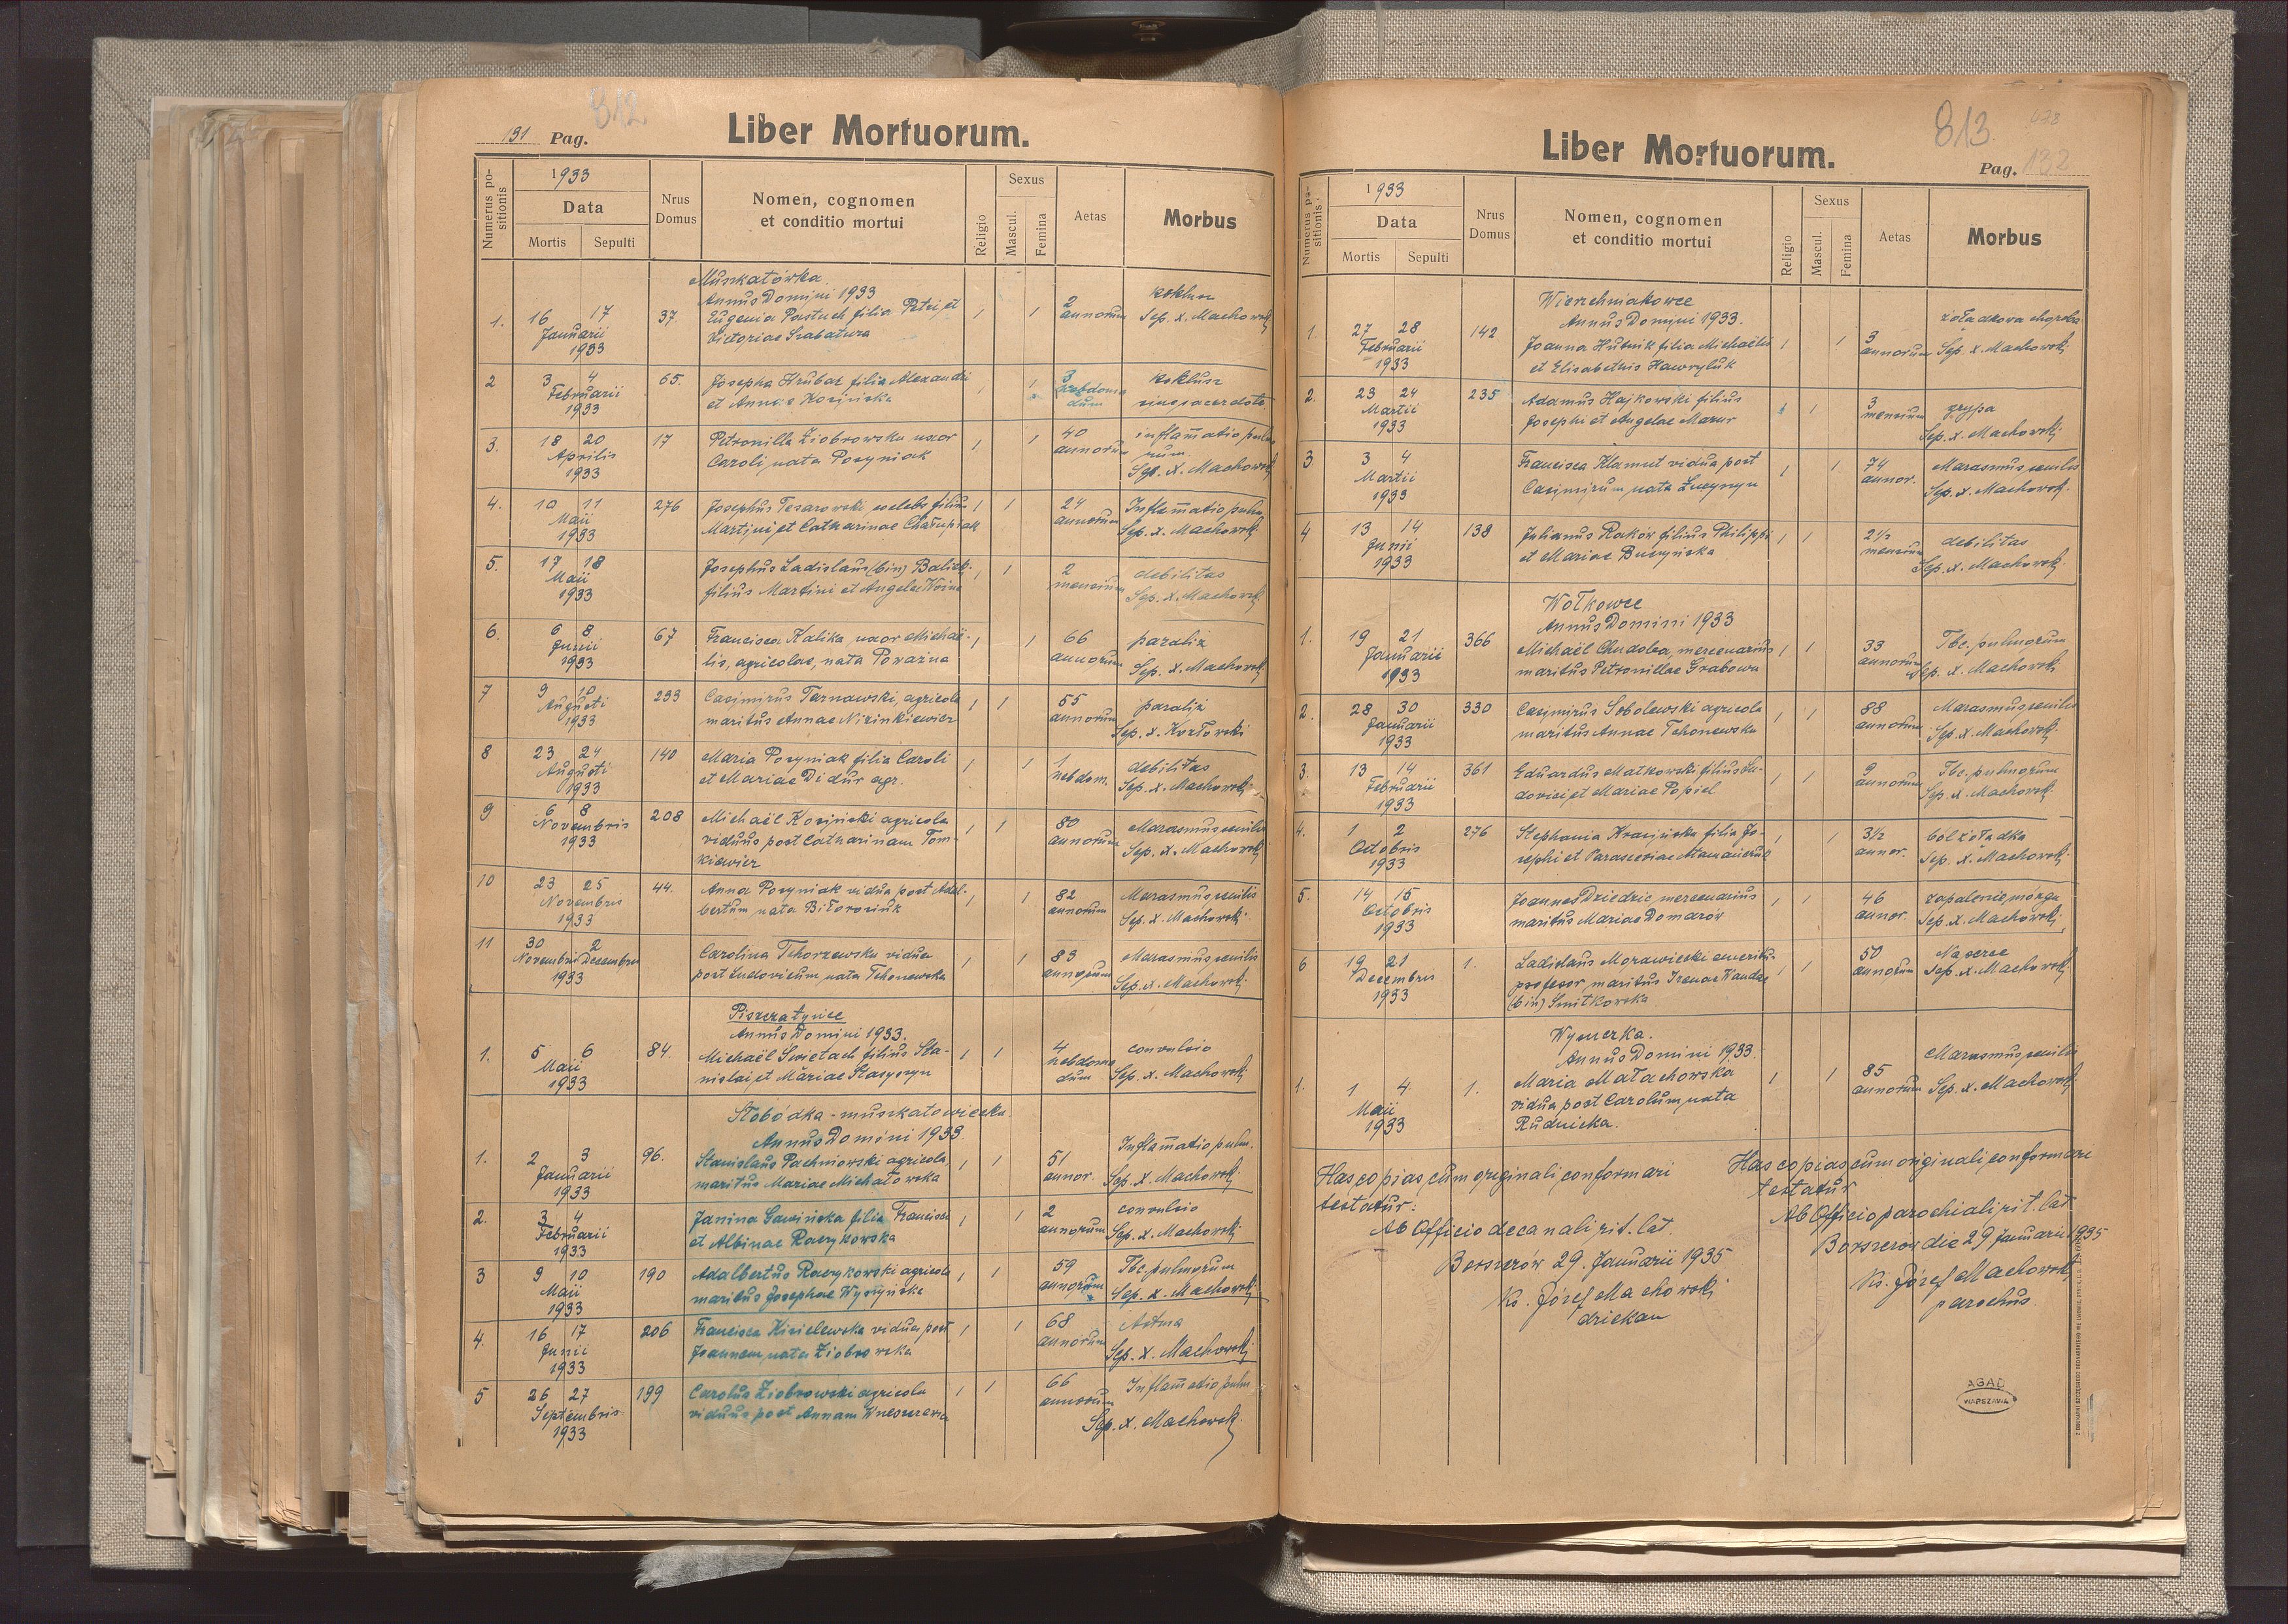 131 Pag.
812
Liber Mortuorum.
Numerus positionis
1933
Data
Mortis Sepulti
Nrus Domus
Nomen, cognomen
et conditio mortui
Religio
Sexus
Mascul. Femina
Aetas
Morbus
Muszkatówka
Annus Domini 1933
1. 16 17 Januarii 1933 37 Eugenia Pastuch filia Petri et 1 1 2 annorum koklusz
Victoriae Srabatura Sep. x. Machowski
2 3 4 Februarii 1933 65. Josepha Hrubar filia Alexandri 1 1 3 hebdoma koklusz
et Annae Kosińska dum sine sacerdote
3. 18 20 Aprilis 1933 17 Petronilla Ziobrowska uxor 1 1 40 annorum inflam̄atio pulmo
Caroli nata Posyniak num. Sep. x. Machowski
4. 10 11 Maii 1933 276 Josephus Tesarowski coelebs filius 1 1 24 annorum Inflam̄atio pulm.
Martini et Catharinae Chałupiak Sep. x. Machowski
5. 17 18 Maii 1933 Josephus Ladislaus (bin) Balicki 1 1 2 mensium debilitas
filius Martini et Angelae Sep. x. Machowski
6. 6 8 Junii 1933 67 Francisca Kalika uxor Michaë- 1 1 66 annorum paraliż
lis, agricolae, nata Poważna Sep. x. Machowski
7 9 10 Augusti 1933 233 Casimirus Tarnawski, agricola 1 1 55 annorum paraliż
maritus Annae Nizinkiewicz Sep. x. Kozłowski
8 23 24 Augusti 1933 140 Maria Posyniak filia Caroli 1 1 1 hebdom. debilitas
et Mariae Didur agr. Sep. x. Machowski
9 6 8 Novembris 1933 208 Michaël Kosiński agricola 1 1 80 annorum Marasmus senilis
viduus post Catharinam Tom- Sep. x. Machowski
kiewicz
10 23 25 Novembris 1933 44. Anna Posyniak vidua post Adal- 1 1 82 annorum Marasmus senilis
bertum nata Biłowsiuk Sep. x. Machowski
11 30 2 Novembris Decembris 1933 Carolina Tchorzewska vidua 1 1 83 annorum Marasmus senilis
post Ludovicum nata Tchonewska Sep. x. Machowski
Piszczatyńce
Annus Domini 1933.
1. 5 6 Maii 1933 84. Michaël Świetach filius Sta- 1 1 4 hebdoma convulsio
nislai et Mariae Stasyszyn dum Sep. x. Machowski
Słobódka-muszkatowiecka
Annus Domini 1933.
1. 2 3 Januarii 1933 96. Stanislaus Pachniowski agricola, 1 1 51 annor. Inflam̄atio pulm.
maritus Mariae Michałowska Sep. x. Machowski
2. 3 4 Februarii 1933 Janina Gawińska filia Francisci 1 1 2 annorum convulsio
et Albinae Raczykowska Sep. x. Machowski
3 9 10 Maii 1933 190 Adalbertus Raczykowski agricola 1 1 59 annorum Tbc. pulmorum
maritus Josephae Wyszyńska Sep. x. Machowski
4. 16 17 Junii 1933 206 Francisca Kisielewska vidua post 1 1 68 annorum Astma
Joannem nata Ziobrowska Sep. x. Machowski
5 26 27 Septembris 1933 199 Carolus Ziobrowski agricola 1 1 66 annorum Inflam̄atio pulm
viduus post Annam Sep. x. Machowski
813
Liber Mortuorum.
Pag. 132
Numerus positionis
1933
Data
Mortis Sepulti
Nrus Domus
Nomen, cognomen
et conditio mortui
Religio
Sexus
Mascul. Femina
Aetas
Morbus
Wierzchniakowce
Annus Domini 1933.
1. 27 28 Februarii 1933 142 Joanna Hutnik filia Michaëlis 1 1 3 annorum żołądkowa choroba
et Elisabethis Hawryluk Sep. x. Machowski
2. 23 24 Martii 1933 235 Adamus Hajkowski filius 1 1 3 mensium grypa
Josephi et Angelae Mazur Sep. x. Machowski
3. 3 4 Martii 1933 Francisca Klamut vidua post 1 1 74 annor. Marasmus senilis
Casimirum nata Łuczyszyn Sep. x. Machowski
4 13 14 Junii 1933 138 Julianus Raków filius Philippi 1 1 2½ mensium debilitas
et Mariae Buczyńska Sep. x. Machowski
Wołkowce
Annus Domini 1933
1. 19 21 Januarii 1933 366 Michaël Chudoba, mercenarius 1 1 33 annorum Tbc. pulmorum
maritus Petronillae Grabowa Sep. x. Machowski
2. 28 30 Januarii 1933 330 Casimirus Sobolewski agricola 1 1 88 annorum Marasmus senilis
maritus Annae Tchonewska Sep. x. Machowski
3. 13 14 Februarii 1933 361 Eduardus Matkowski filius Lu- 1 1 9 annorum Tbc. pulmorum
dovici et Mariae Popiel Sep. x. Machowski
4. 1 2 Octobris 1933 276 Stephania Krasińska filia Jo- 1 1 3½ annor. ból żołądka
sephi et Parasceviae Atamańczuk Sep. x. Machowski
5. 14 15 Octobris 1933 Joannes Dziedzic, mercenarius 1 1 46 annor. zapalenie mózgu
maritus Mariae Domarów Sep. x. Machowski
6 19 21 Decembris 1933 1. Ladislaus Morawiecki emerit. 1 1 50 annorum Na serce
profesor maritus Irenae Wandae Sep. x. Machowski
(bin) Smitkowska
Wymerka.
Annus Domini 1933.
1. 1 4. Maii 1933 1. Maria Małachowska 1 1 85 annorum Marasmus senilis
vidua post Carolum nata Sep. x. Machowski
Rudnicka.
Has copias cum originali conformari
testatur:
Ab Officio decanali rit. lat.
Borszczów 29. Januarii 1935
Ks. Józef Machowski
dziekan
Has copias cum originali conformare
testatur
Ab Officio parochiali rit. lat
Borszczów die 29. Januarii 1935
Ks. Józef Machowski
parochus
AGAD
WARSZAWA